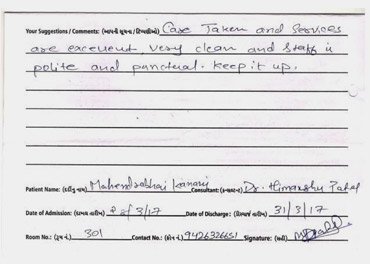 Your Suggestions / Comments: (આપની સૂચના / ટિપ્પણીઓ) Care Taken and Services
are excellent, very clean and staff is
polite and punctual. keep it up.
Patient Name: (દર્દીનું નામ) Mahendrabhai Consultant: (કન્સલ્ટન્ટ) Dr. Himanshu Patel
Date of Admission: (દાખલ તારીખ) /3/17 Date of Discharge: (ડિસ્ચાર્જ તારીખ) 31/3/17
Room No.: (રૂમ નં.) 301 Contact No.: (ફોન નં.) 9426326651 Signature: (સહી)